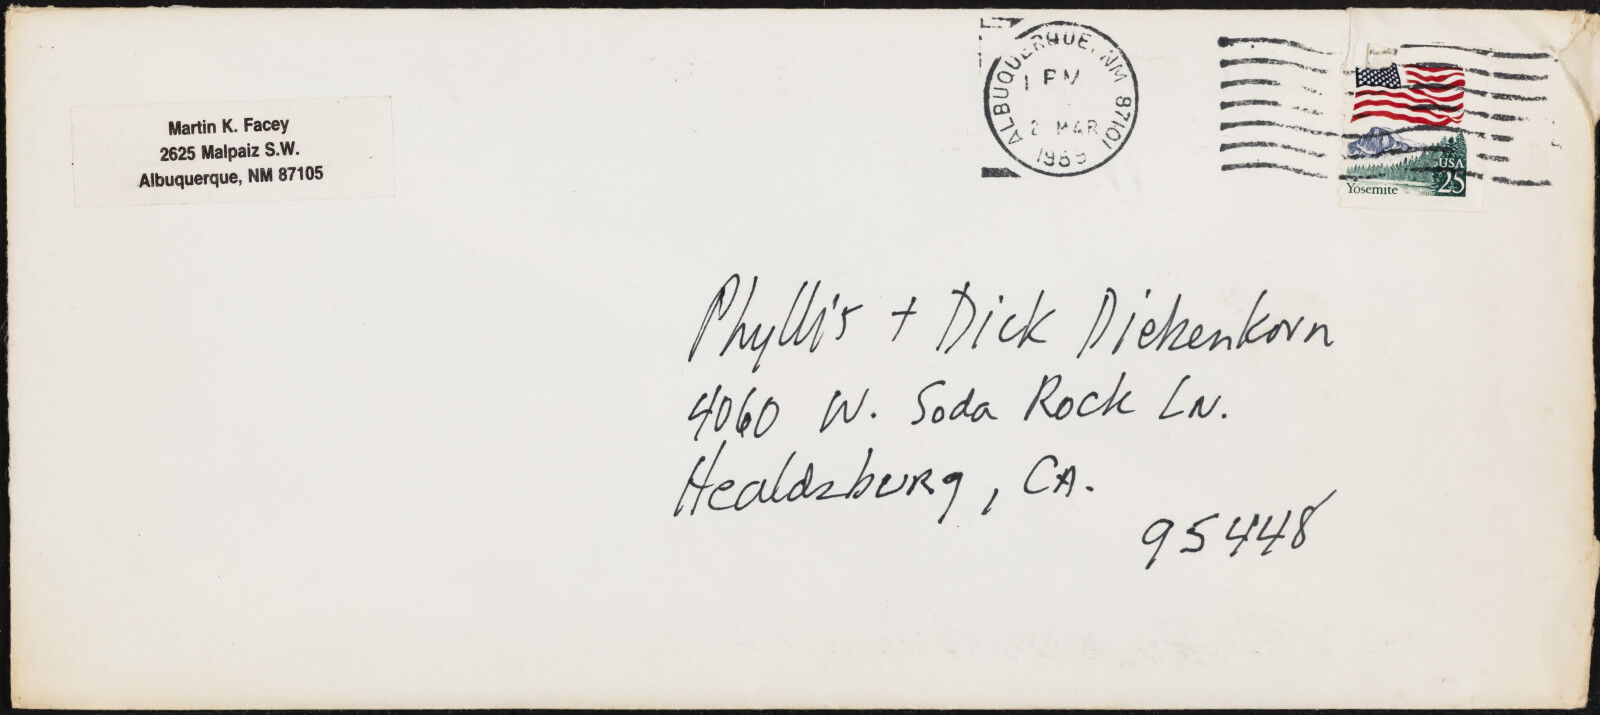 Martin K. Facey
2625 Malpaiz S.W.
Albuquerque, NM 87105
ALBUQUERQUE, NM 87101
PM
2 MAR
1989
USA
25
Yosemite
Phyllis + Dick Diebenkorn
4060 W. Soda Rock Ln.
Healdsburg, CA.
95448